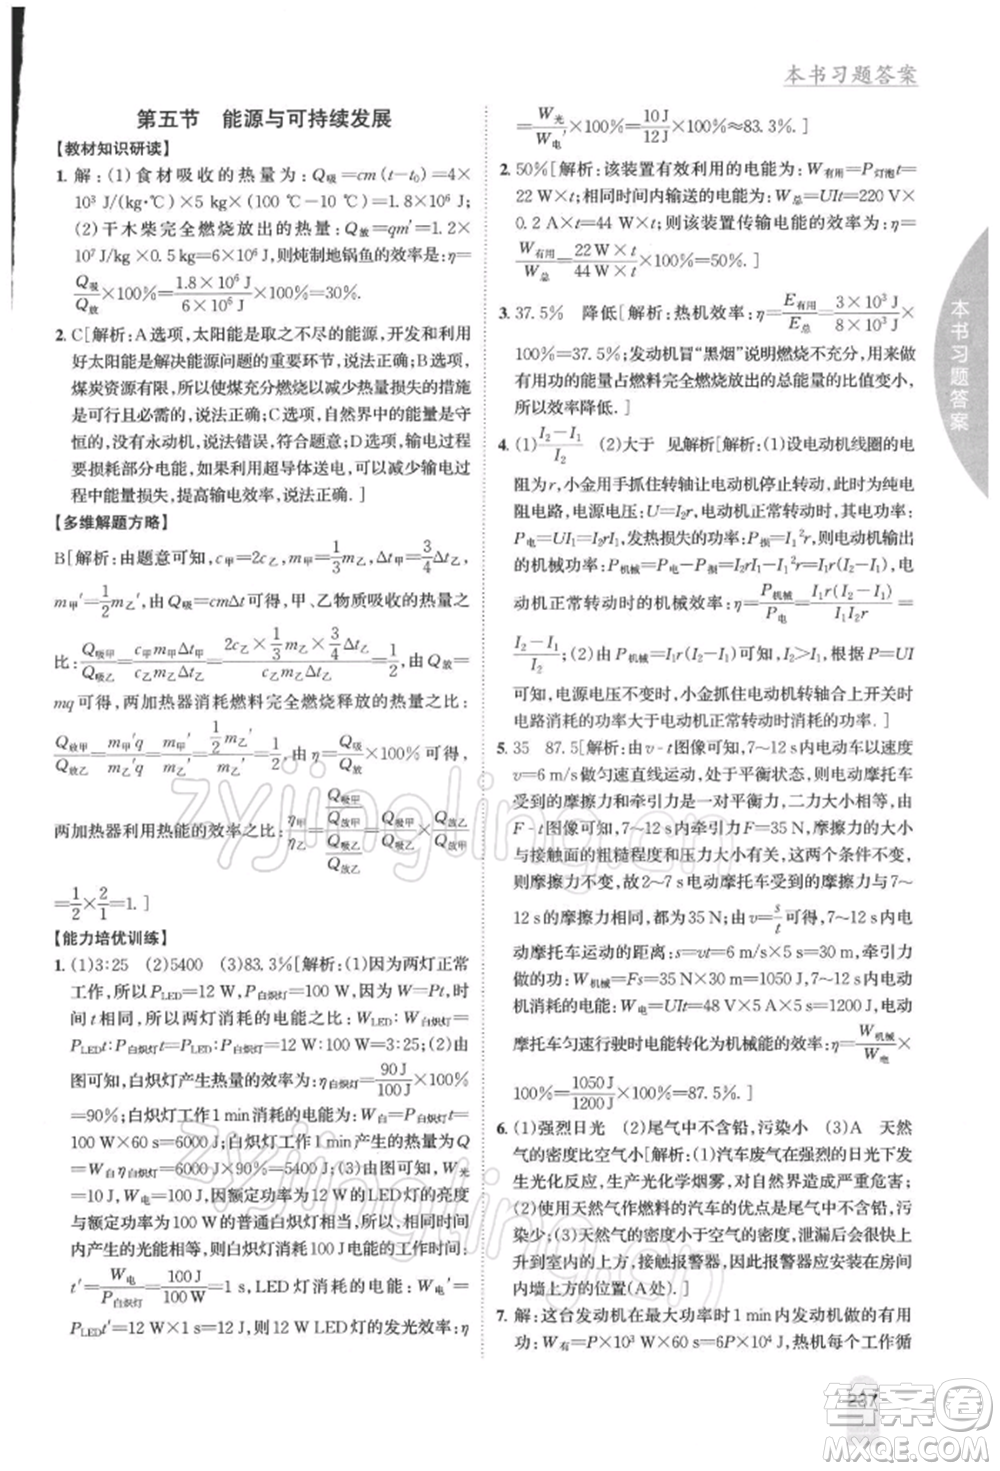 本书习题答案
第五节 能源与可持续发展
【教材知识研读】
1. 解：(1)食材吸收的热量为：Q吸=cm(t-t₀)=4×
10³ J/(kg·℃)×5 kg×(100 ℃-10 ℃)=1.8×10⁶ J；
(2)干木柴完全燃烧放出的热量：Q放=qm′=1.2×
10⁷ J/kg×0.5 kg=6×10⁶ J，则炖制地锅鱼的效率是：η=
Q吸/Q放×100%=1.8×10⁶ J/6×10⁶ J×100%=30%.
2. C[解析：A选项，太阳能是取之不尽的能源，开发和利用
好太阳能是解决能源问题的重要环节，说法正确；B选项，
煤炭资源有限，所以使煤充分燃烧以及减少热量损失的措施
是可行且必需的，说法正确；C选项，自然界中的能量是守恒
的，没有永动机，说法错误，符合题意；D选项，输电过程中会
有部分电能，因为电阻转化为热量损失掉，减少输电过程中
能量损失，提高输电效率，可以利用超导体进行输电，说法正确.]
【多维解题方略】
B[解析：由题意可知，c甲=2c乙，m甲=1/3 m乙，Δt甲=3/4 Δt乙，
m甲′=1/2 m乙′，由Q吸=cmΔt可得，甲、乙物质吸收的热量之
比：Q吸甲/Q吸乙=c甲m甲Δt甲/c乙m乙Δt乙=2c乙×1/3 m乙×3/4 Δt乙/c乙m乙Δt乙=1/2；由Q放=
mq可得，两加热器消耗燃料完全燃烧释放的热量之比：
Q放甲/Q放乙=m甲′q/m乙′q=1/2 m乙′/m乙′=1/2，由η=Q吸/Q放×100%可得，
两加热器利用热能的效率之比：η甲/η乙=(Q吸甲/Q放甲)/(Q吸乙/Q放乙)=Q吸甲/Q吸乙×Q放乙/Q放甲
=1/2×2/1=1.]
【能力培优训练】
1. (1)3:25 (2)5400 (3)83.3%[解析：(1)因为两灯正常
工作，所以P LED=12 W，P白炽灯=100 W，因为W=Pt，时
间t相同，所以两灯消耗的电能之比：W LED：W白炽灯=
P LED t：P白炽灯t=12 W：100 W=3:25；(2)由图
可知，白炽灯产生热量的效率：η白炽灯=90 J/100 J×100%
=90%；白炽灯工作1 min消耗的电能：W白=P白炽灯t=
100 W×60 s=6000 J；白炽灯工作1 min产生的热量Q
=W白η白炽灯=6000 J×90%=5400 J；(3)由图可知，W光
=10 J，W电=12 J，因额定功率为12 W的LED灯的亮度
与额定功率为100 W的普通白炽灯相当，所以，相同时间
内产生的光能相等，所以白炽灯消耗100 J电能的工作时间：
t′=W电/P白炽灯=100 J/100 W=1 s，LED灯消耗的电能：W电′=
P LED t′=12 W×1 s=12 J；则12 W LED灯的发光效率：η
=W光/W电′×100%=10 J/12 J×100%≈83.3%.]
2. 50%[解析：该装置有效利用的电能为：W有用=P灯泡t=
22 W×t；相同时间内输送的电能为：W总=UIt=220 V×
0.2 A×t=44 W×t；则该装置传输电能的效率为：η=
W有用/W总=22 W×t/44 W×t×100%=50%.]
3. 37.5% 降低[解析：热机效率：η=E有用/E总=3×10³ J/8×10³ J×
100%=37.5%；发动机冒“黑烟”说明燃烧不充分，用来做
有用功的能量占燃料完全燃烧放出的总能量的比值变小，
所以效率降低.]
4. (1)I₂-I₁/I₂ (2)大于 见解析[解析：(1)设电动机线圈的电
阻为r，小金用手抓住转轴让电动机停止转动，此时为纯电
阻电路，电源电压：U=I₂r，电动机正常工作时，其电功率：
P电=UI₁=I₁I₂r，发热损失的功率：P损=I₁²r，电动机输出
功率：P机械=P电-P损=I₁I₂r-I₁²r=I₁r(I₂-I₁)，电
动机正常转动时的机械效率：η=P机械/P电=I₁r(I₂-I₁)/I₁I₂r=
I₂-I₁/I₂；(2)由P机械=I₁r(I₂-I₁)可知，I₂>I₁，由P=UI
可知，电源电压不变时，小金抓住电动机转轴合上开关时
电路消耗的功率大于电动机正常转动时消耗的功率.]
5. 35 87.5[解析：由v-t图像可知，7~12 s内电动车以速度
v=6 m/s做匀速直线运动，处于平衡状态，则电动摩托车
受到的摩擦力和牵引力是一对平衡力，二力大小相等，由
F-t图像可知，7~12 s内牵引力为35 N，摩擦力的大小
与接触面的粗糙程度和压力大小有关，这两个条件不变，
则摩擦力不变，故2~7 s电动摩托车受到的摩擦力与7~
12 s的摩擦力相同，都为35 N；由v=s/t可得，7~12 s内电
动摩托车运动的路程：s=vt=6 m/s×5 s=30 m，牵引力
做的功：W机械=Fs=35 N×30 m=1050 J，7~12 s内电动
机消耗的电能：W电=UIt=48 V×5 A×5 s=1200 J，电动
摩托车匀速行驶时电能转化为机械能的效率：η=W机械/W电×
100%=1050 J/1200 J×100%=87.5%.]
6. (1)强烈日光 (2)尾气中不含铅，污染小 (3)A 天然
气的密度比空气小[解析：(1)汽车废气在强烈的日光下发
生光化反应，产生光化学烟雾，对自然界造成严重危害；
(2)使用天然气作燃料的汽车的优点是尾气中不含铅，污
染少；(3)天然气的密度小于空气的密度，泄漏后会集中
到室内的上方，接触报警器，因此报警器应安在房间
内墙上方的位置(A处).]
7. 解：这台发动机在最大功率时1 min内发动机做的有用
功：W有=P×100 W×60 s=6P×10⁴ J，热机每个工作循
237
本书习题答案
zyjingling.cn
zyjingling.cn
答案圈
MXQE.COM